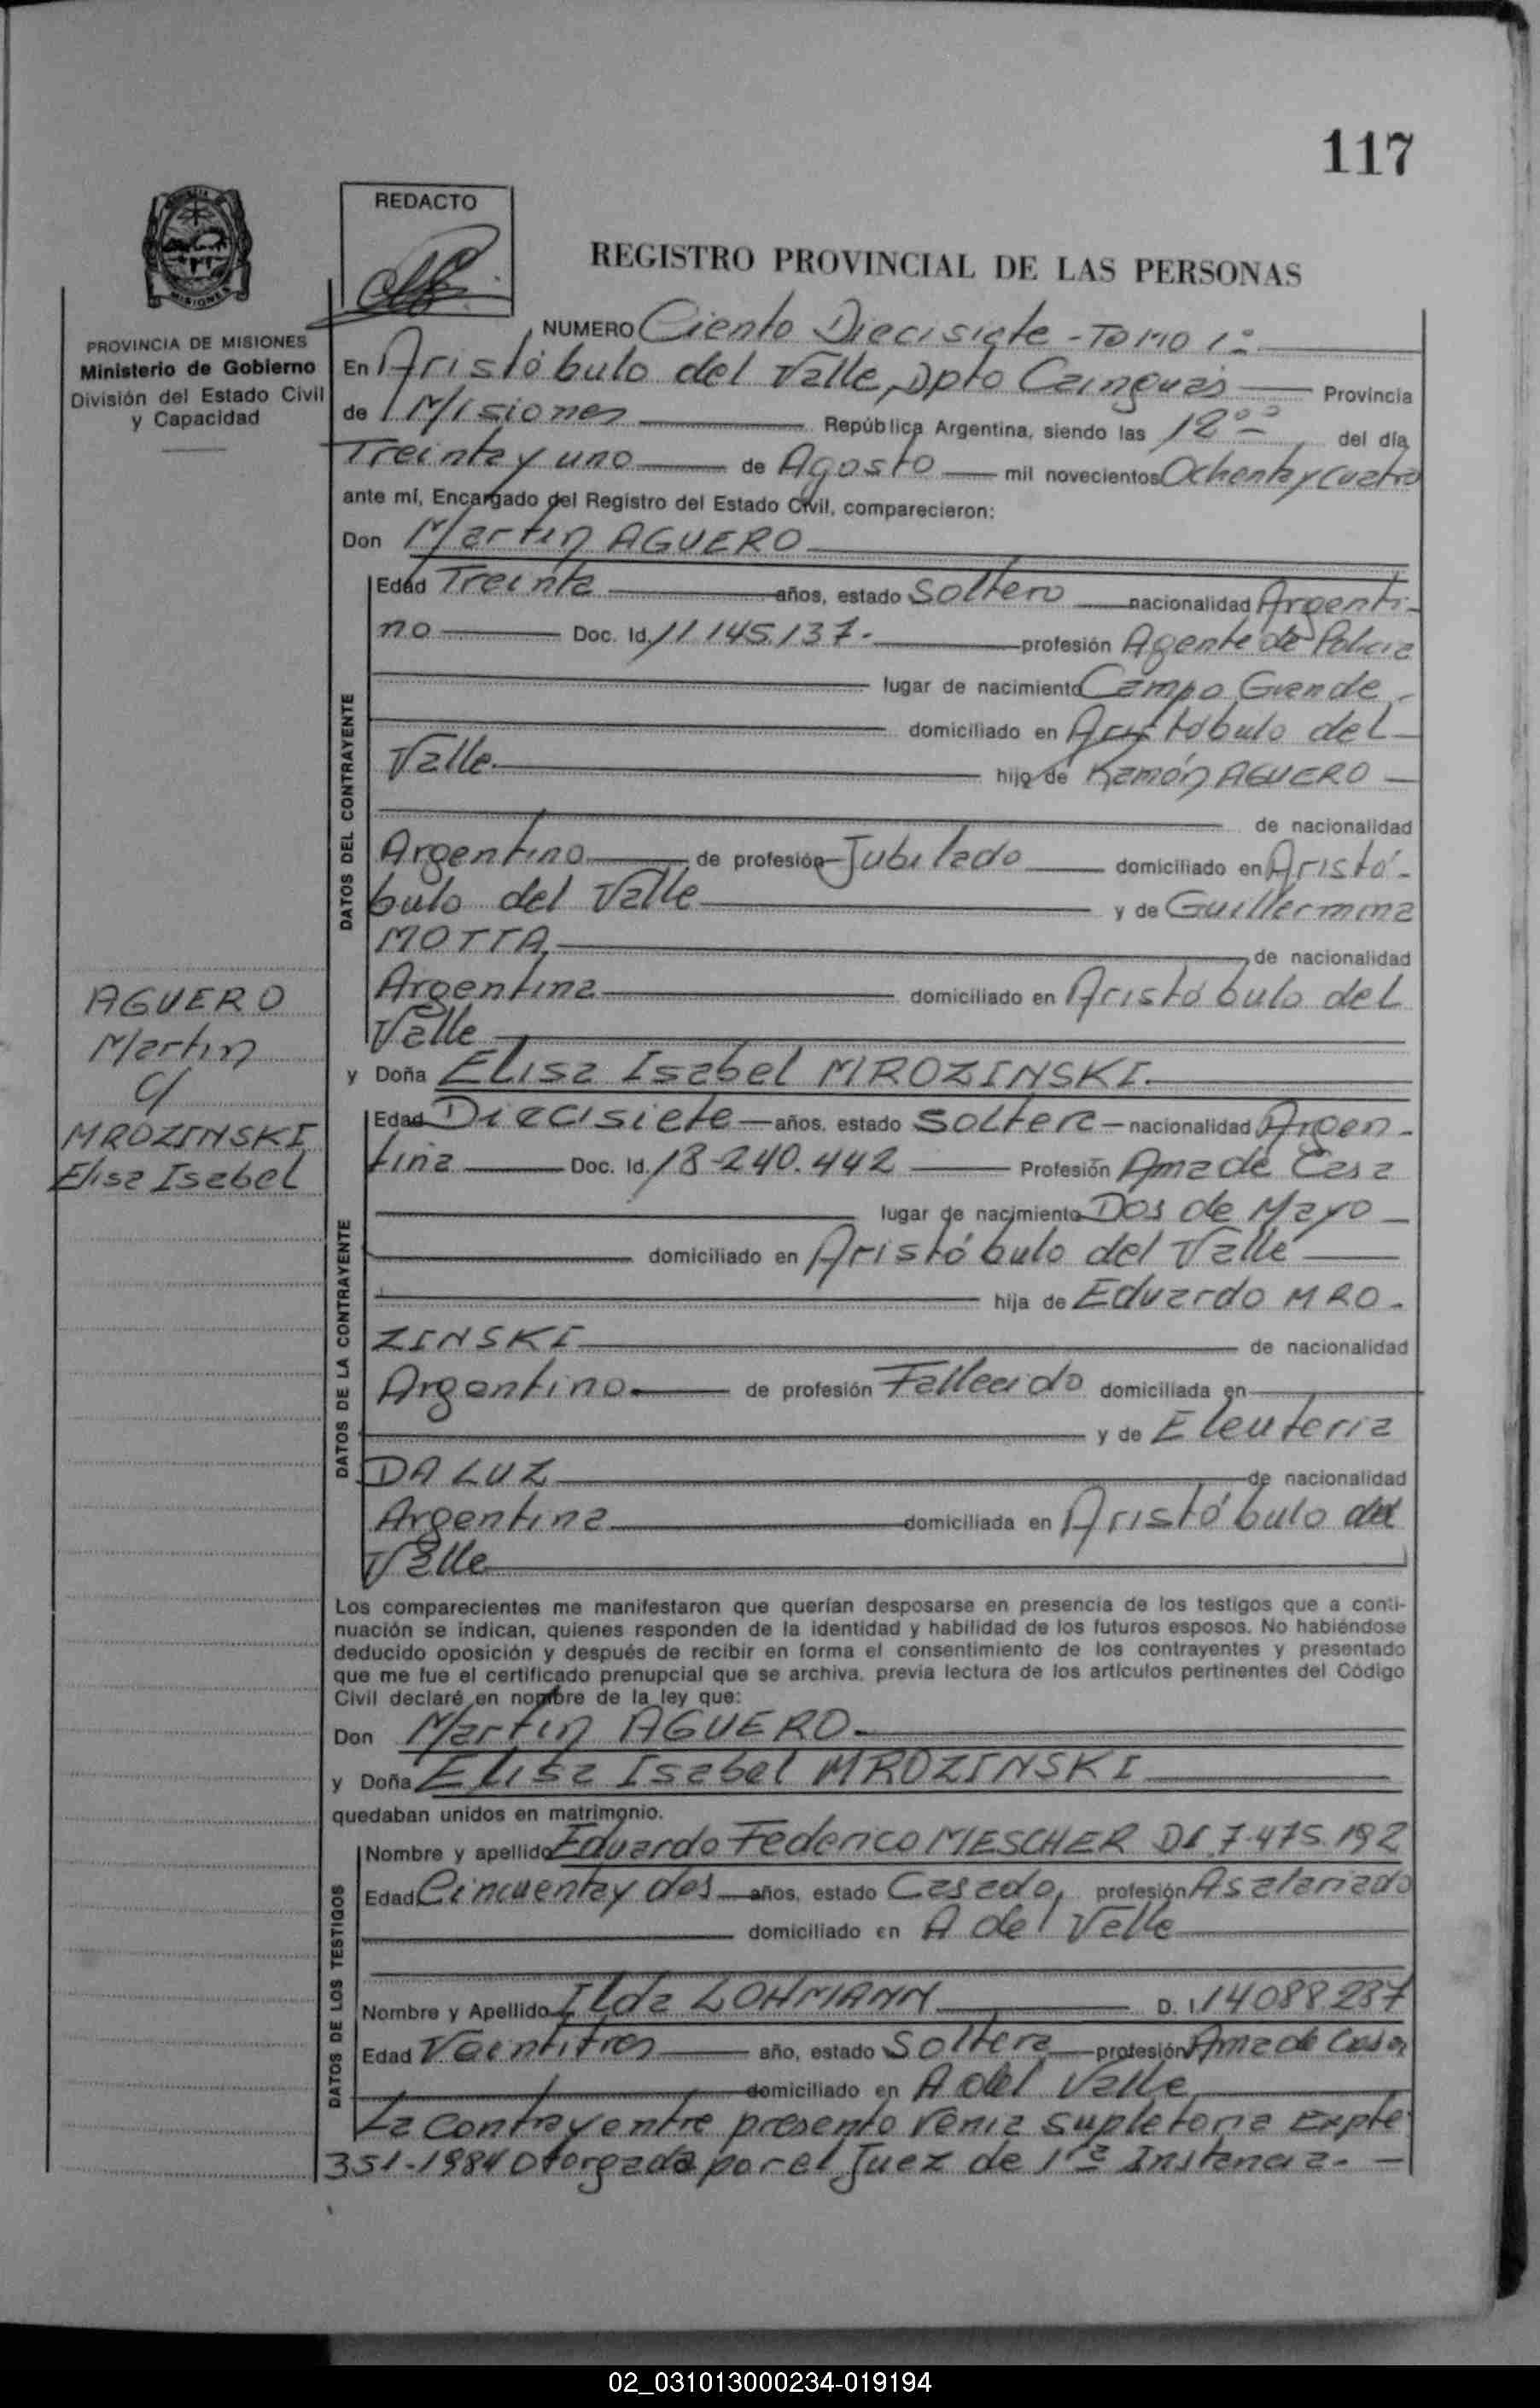 117
REDACTO
REGISTRO PROVINCIAL DE LAS PERSONAS
MISIONES
PROVINCIA DE MISIONES
Ministerio de Gobierno
División del Estado Civil
y Capacidad
NUMERO Ciento Diecisiete - TOMO 1º
En Aristóbulo del Valle, Dpto Cainguás Provincia
de Misiones República Argentina, siendo las 12ºº del día
Treinta y uno de Agosto mil novecientos Ochenta y cuatro
ante mí, Encargado del Registro del Estado Civil, comparecieron:
Don Martin AGUERO
DATOS DEL CONTRAYENTE
Edad Treinta años, estado Soltero nacionalidad Argenti-
no Doc. Id. 11.145.137.- profesión Agente de Policia
lugar de nacimiento Campo Grande
domiciliado en Aristóbulo del
Valle. hijo de Ramón AGUERO
de nacionalidad
Argentino de profesión Jubilado domiciliado en Aristó-
bulo del Valle y de Guillermina
MOTTA de nacionalidad
Argentina domiciliado en Aristóbulo del
Valle
y Doña Elisa Isabel MROZINSKI.
AGUERO
Martin
c/
MROZINSKI
Elisa Isabel
DATOS DE LA CONTRAYENTE
Edad Diecisiete años, estado Soltera nacionalidad Argen-
tina Doc. Id. 18-240.442 Profesión Ama de Casa
lugar de nacimiento Dos de Mayo
domiciliado en Aristóbulo del Valle
hija de Eduardo MRO-
ZINSKI de nacionalidad
Argentino de profesión Fallecido domiciliada en
y de Eleuteria
DA LUZ de nacionalidad
Argentina domiciliada en Aristóbulo del
Valle
Los comparecientes me manifestaron que querían desposarse en presencia de los testigos que a conti-
nuación se indican, quienes responden de la identidad y habilidad de los futuros esposos. No habiéndose
deducido oposición y después de recibir en forma el consentimiento de los contrayentes y presentado
que me fue el certificado prenupcial que se archiva, previa lectura de los artículos pertinentes del Código
Civil declaré en nombre de la ley que:
Don Martin AGUERO.
y Doña Elisa Isabel MROZINSKI
quedaban unidos en matrimonio.
DATOS DE LOS TESTIGOS
Nombre y apellido Eduardo Federico MESCHER DI 7.475.192
Edad Cincuenta y dos años, estado Casado, profesión Asalariado
domiciliado en A del Valle
Nombre y Apellido Ilda LOHMANN D. I. 14088237
Edad Veintitres año, estado Soltera profesión Ama de Casa
domiciliado en A del Valle
La contrayente presento venia supletoria Expte
351-1984 Otorgada por el Juez de 1ra Instancia.-
02_031013000234-019194